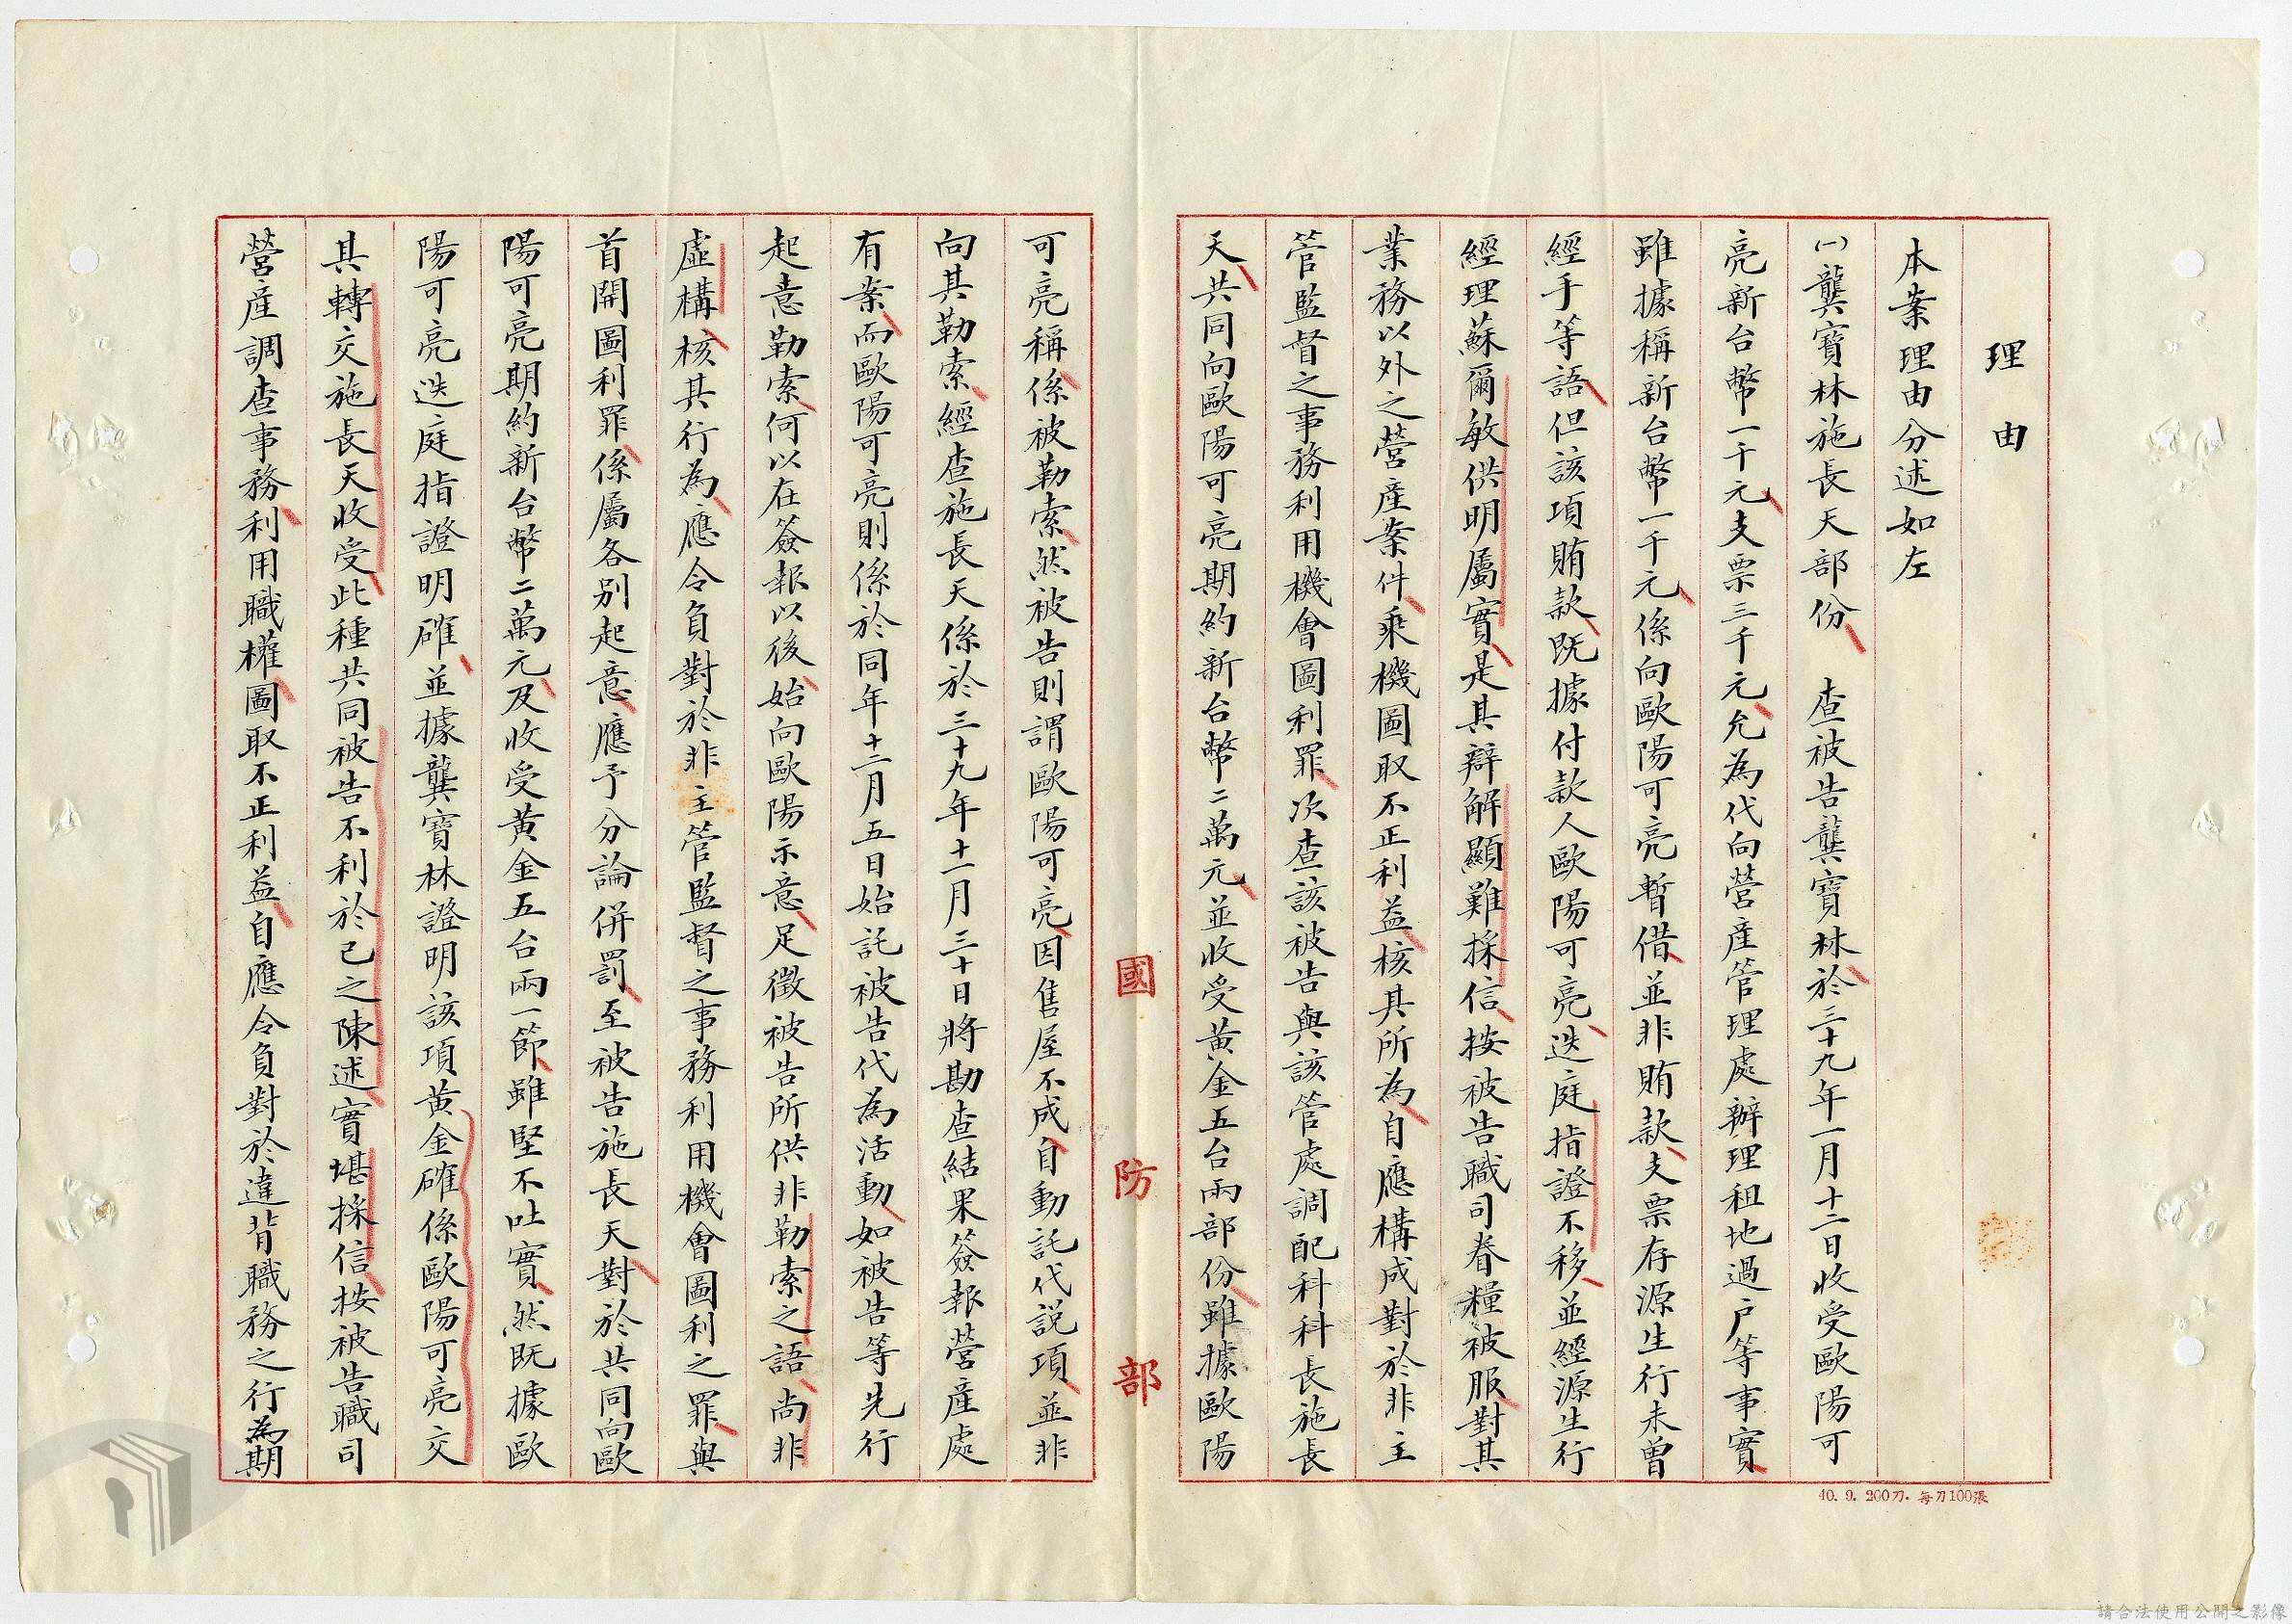 理由
本案理由分述如左
㈠龔寶林施長天部份　查被告龔寶林於三十九年一月十二日收受歐陽可
亮新台幣一千元支票三千元允為代向營產管理處辦理租地過戶等事實
雖據稱新台幣一千元係向歐陽可亮暫借並非賄款支票存源生行未曾
經手等語但該項賄款既據付款人歐陽可亮迭庭指證不移並經源生行
經理蘇爾敏供明屬實是其辯解顯難採信按被告職司眷糧被服對其
業務以外之營產案件乘機圖取不正利益核其所為自應構成對於非主
管監督之事務利用機會圖利罪次查該被告與該管處調配科科長施長
天共同向歐陽可亮期約新台幣二萬元並收受黃金五台兩部份雖據歐陽
國防部
可亮稱係被勒索然被告則謂歐陽可亮因售屋不成自動託代說項並非
向其勒索經查施長天係於三十九年十一月三十日將勘查結果簽報營產處
有案而歐陽可亮則係於同年十二月五日始託被告代為活動如被告等先行
起意勒索何以在簽報以後始向歐陽示意足徵被告所供非勒索之語尚非
虛構核其行為應令負對於非主管監督之事務利用機會圖利之罪與
首開圖利罪係屬各別起意應予分論併罰至被告施長天對於共同向歐
陽可亮期約新台幣二萬元及收受黃金五台兩一節雖堅不吐實然既據歐
陽可亮迭庭指證明確並據龔寶林證明該項黃金確係歐陽可亮交
其轉交施長天收受此種共同被告不利於己之陳述實堪採信按被告職司
營產調查事務利用職權圖取不正利益自應令負對於違背職務之行為期
40. 9. 200刀. 每刀100張
請合法使用公開之影像